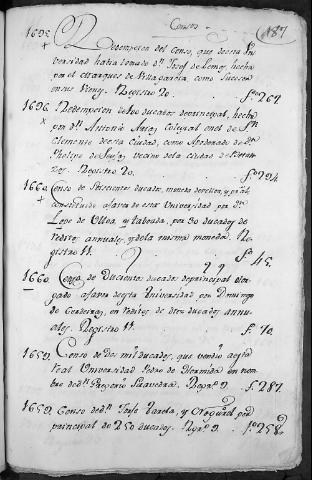 Censos
187
1692 Redempcion del Censo, que desta Vni
+ versidad havia tomado Dn. Josef de Lemos, hecha
por el Marques de Villagarcia como sucesor
en sus Vienes. Registro 20. fo. 267
1696 Redempcion de 100 ducados de principal, hecha
x por Dn. Antonio Colegial en el de Sn.
Clemente desta Ciudad, como Apoderado de Dn.
Phelipe de vecino de la ciudad de
Registro 20. fo. 294
1660 Censo de Seiscientos ducados, moneda de vellon, y pral.
+ constituido a favor de esta Universidad por Dn.
Lope de Ulloa, y Taboada, por 30 ducados de
redito annuales, y de la misma moneda. Re
gistro 11. fo. 45.
1660 Censo de Duscientos ducados de principal otor
gado a favor desta Universidad por Domingo
de Cordeiro, en reditos de diez ducados annu
ales. Registro 11. fo. 70.
1659 Censo de dos mil ducados, que vendio a esta
real Universidad Pedro de Hermida en nom
bre de Dn. Gregorio Saavedra. Regro. 9. fo. 287
1659 Censo de Dn. Josfe Varela, y por
principal de 250 ducados. Rgro. 9. fo. 258